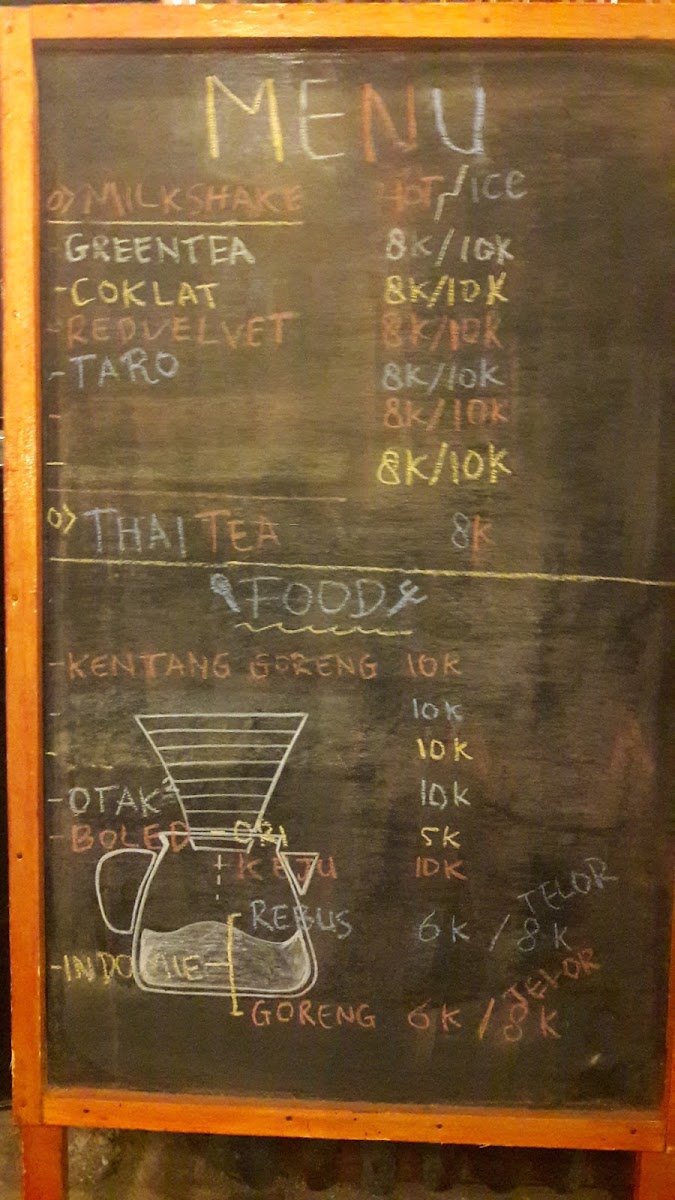 MENU
MILKSHAKE HOT/ICE
- GREENTEA 8K/10K
- COKLAT 8K/10K
- REDVELVET 8K/10K
- TARO 8K/10K
- 8K/10K
- 8K/10K
THAI TEA 8K
FOOD
- KENTANG GORENG 10K
- 10K
- 10K
- OTAK² 10K
- BOLED - ORI 5K
KEJU 10K
REBUS 6K / 8K TELOR
- INDOMIE
GORENG 6K / 8K TELOR